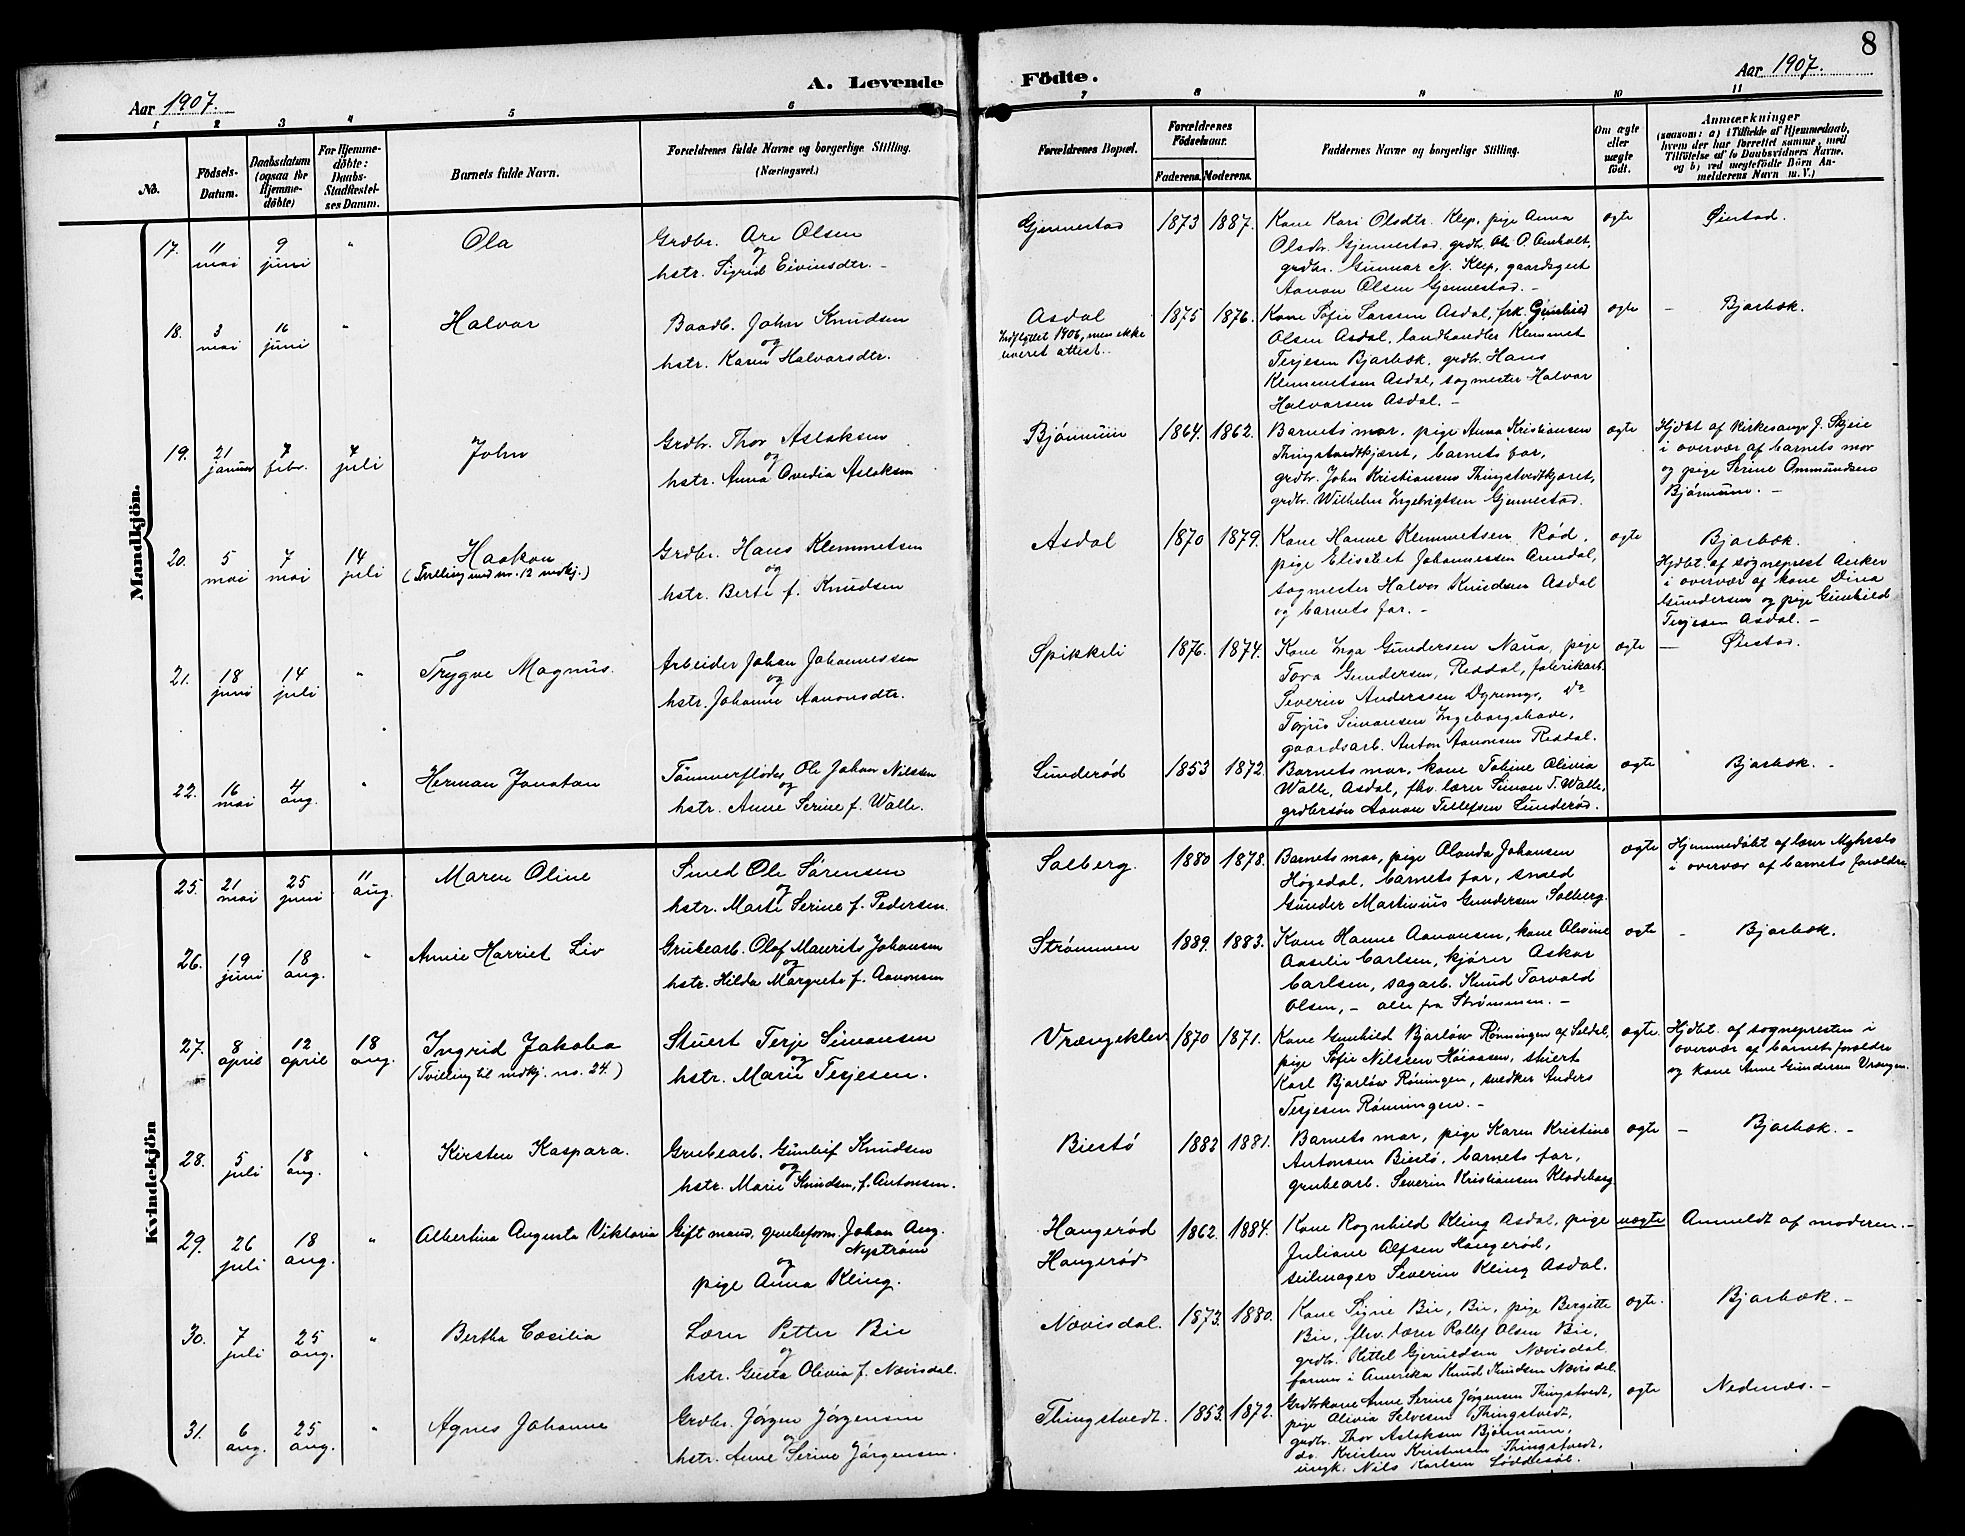 8
Aar 1907.
A. Levende Födte.
Aar 1907.
1 2 3 4 5 6 7 8 9 10 11
No.
Födsels-Datum.
Daabsdatum (ogsaa for Hjemmedöbte)
For Hjemmedöbte: Daabs-Stadfæstelses Datum.
Barnets fulde Navn.
Forældrenes fulde Navne og borgerlige Stilling.
(Næringsvei.)
Forældrenes Bopæl.
Forældrenes Födselsaar.
Faderens. Moderens.
Faddernes Navne og borgerlige Stilling.
Om ægte eller uægte födt.
Anmærkninger
(saasom: a) i Tilfælde af Hjemmedaab, hvem der har forrettet samme, med Tilföielse af to Daabsvidners Navne, og b) ved uægtefödte Börn Anmelderens Navn m. V.)
Mandkjön.
17. 11 mai 9 juni " Ola
Grdbr. Are Olsen
og
hstr. Sigrid Eivinsdtr. -
Gjennestad 1873 1887.
Kone Kari Olsdtr. Klep, pige Anna
Olsdtr. Gjennestad, grdb. Ole O. Omholt,
grdbr. Gunnar N. Klep, gaardsgut
Aanon Olsen Gjennestad. -
ægte Øiestad.
18. 3 mai 16 juni " Halvor
Baadb. John Knudsen
og
hstr. Karen Halvorsdtr.
Asdal
Indflyttet 1906, men ikke
leveret attest.
1875 1876.
Kone Sofie Larsen Asdal, frk. Gunhild
Olsen Asdal, landhandler Klemmet
Terjesen Bjorbæk, grdb. Hans
Klemmetsen Asdal, sagmester Halvor
Halvorsen Asdal. -
ægte - Bjorbæk.
19. 21 januar 7 febr. 7 juli John
Grdbr. Thor Aslaksen
og
hstr. Anna Ovedia Aslaksen
Bjønnum 1864. 1862.
Barnets mor, pige Anna Kristiansen
Thingstvedtkjæret, barnets far,
grdbr. John Kristiansens Thingstvedtkjæret,
grdbr. Wilhelm Ingebrigtsen Gjennestad.
ægte
Hjdbt af Kirkesanger J. Skjeie
i overvær af barnets mor
og pige Serine Ommundsen
Bjønnum. -
20. 5 mai 7 mai 14 juli Haakon
(Tvilling med no. 12 mdkj.)
Grdbr. Hans Klemmetsen
og
hstr. Berte f. Knudsen
Asdal 1870 1879.
Kone Hanne Klemmetsen Rød,
pige Elisabet Johannessen Arendal,
sagmester Halvor Knudsen Asdal
og barnets far. -
ægte Bjorbæk.
Hjdbt. af sogneprest Anker
i overvær af kone Dina
Gundersen og pige Gunhild
Terjesen Asdal. -
21. 18 juni 14 juli " Trygve Magnus.
Arbeider Johan Johannessen
og
hstr. Johanne Aanonsdtr.
Spikkeli 1876. 1874.
Kone Inga Gundersen Naua, pige
Tora Gundersen, Reddal, fabrikarb.
Severin Anderssen Dyrmyr, do
Terjus Simonsen Ingeborgshave,
gaardsarb. Anton Aanonsen Reddal.
ægte - Øiestad.
22. 16 mai 4 aug. " Herman Jonatan
Tømmerfløder Ole Johan Nilssen
og
hstr. Anne Serine f. Walle.
Lunderød 1853 1872.
Barnets mor, kone Tobine Olivia
Walle, Asdal, fhv. lærer Simon T. Walle,
grdbrsøn Aanon Tellefsen Lunderød.
ægte Bjorbæk. -
Kvindekjön
25. 21 mai 25 juni 11 aug. Maren Oline
Smed Ole Sørensen
og
hstr. Marte Serine f. Pedersen.
Solberg. 1880 1878.
Barnets mor, pige Olanda Johansen
Høgedal, barnets far, smed
Gunder Martinius Gundersen Solberg.
ægte
Hjemmedøbt af lærer
i overvær af barnets forældre
26. 19 juni 18 aug. " Annie Harriet Liv
Grubearb. Olof Maurits Johansen
og
hstr. Hilda Margrete f. Aanonsen
Strømmen 1889. 1883.
Kone Hanne Aanonsen, kone Olevine
Aaselie Carlsen, kjører Askar
Carlsen, sagarb. Knud Torvald
Olsen, - alle fra Strømmen. -
ægte - Bjorbæk.
27. 8 april 12 april 18 aug. Ingrid Jakoba
(Tvilling til mdkj. no. 24.)
Stuert Terje Simonsen
og
hstr. Marie Terjesen.
Vrængeklev 1870 1871.
Kone Gunhild Bjorløw Rønningen af Seldal,
pige Sofie Nilssen Høiaasen, stuert
Karl Bjorløw Røningen, snedker Anders
Terjesen Rønningen. -
ægte.
Hjdbt af sognepresten i
overvær af barnets forældre
og kone Anne Gundersen Vrængen.
28. 5 juli 18 aug. " Kirsten Kaspara.
Grubearb. Gunleif Knudsen
og
hstr. Marie Knudsen, f. Antonsen.
Biestø 1882 1881.
Barnets mor, pige Karen Kristine
Antonsen Biestø, barnets far,
grubearb. Severin Kristiansen Klodeborg
ægte - Bjorbæk. -
29. 26 juli 18 aug. " Albertina Augusta Viktoria
Gift mand, grubeform. Johan Aug.
Nystrøm
og
pige Anna Kling.
Hangerød
Hangerød
1862. 1884.
Kone Ragnhild Kling Asdal, pige
Juliane Olfsen Hangerød,
seilmager Severin Kling Asdal.
uægte Anmeldt af moderen. -
30. 7 juli 25 aug. " Bertha Cæsilia
Lærer Petter Bie
og
hstr. Gusta Olivia f. Nævisdal.
Nævisdal. 1873. 1880.
Kone Signe Bie, Bie, pige Bergitte
Bie, fhv. lærer Rollef Olsen Bie,
grdbr. Kittel Gjeruldsen Nævisdal,
farmer i Amerika Knud Knudsen Nævisdal.
ægte. Bjorbæk. -
31. 6 aug. 25 aug. " Agnes Johanne
Grdbr. Jørgen Jørgensen
og
hstr. Anne Serine Jørgensen.
Thingstvedt. 1853. 1872.
Grdbkone Anne Serine Jørgensen Thingstvedt,
pige Olivia Selvesen Thingstvedt,
grdbr. Thor Aslaksen Bjønnum,
do. Kristen Kristensen Thingstvedt,
ungk. Nils Karlsen Løddesøl.
ægte Nedenæs. -